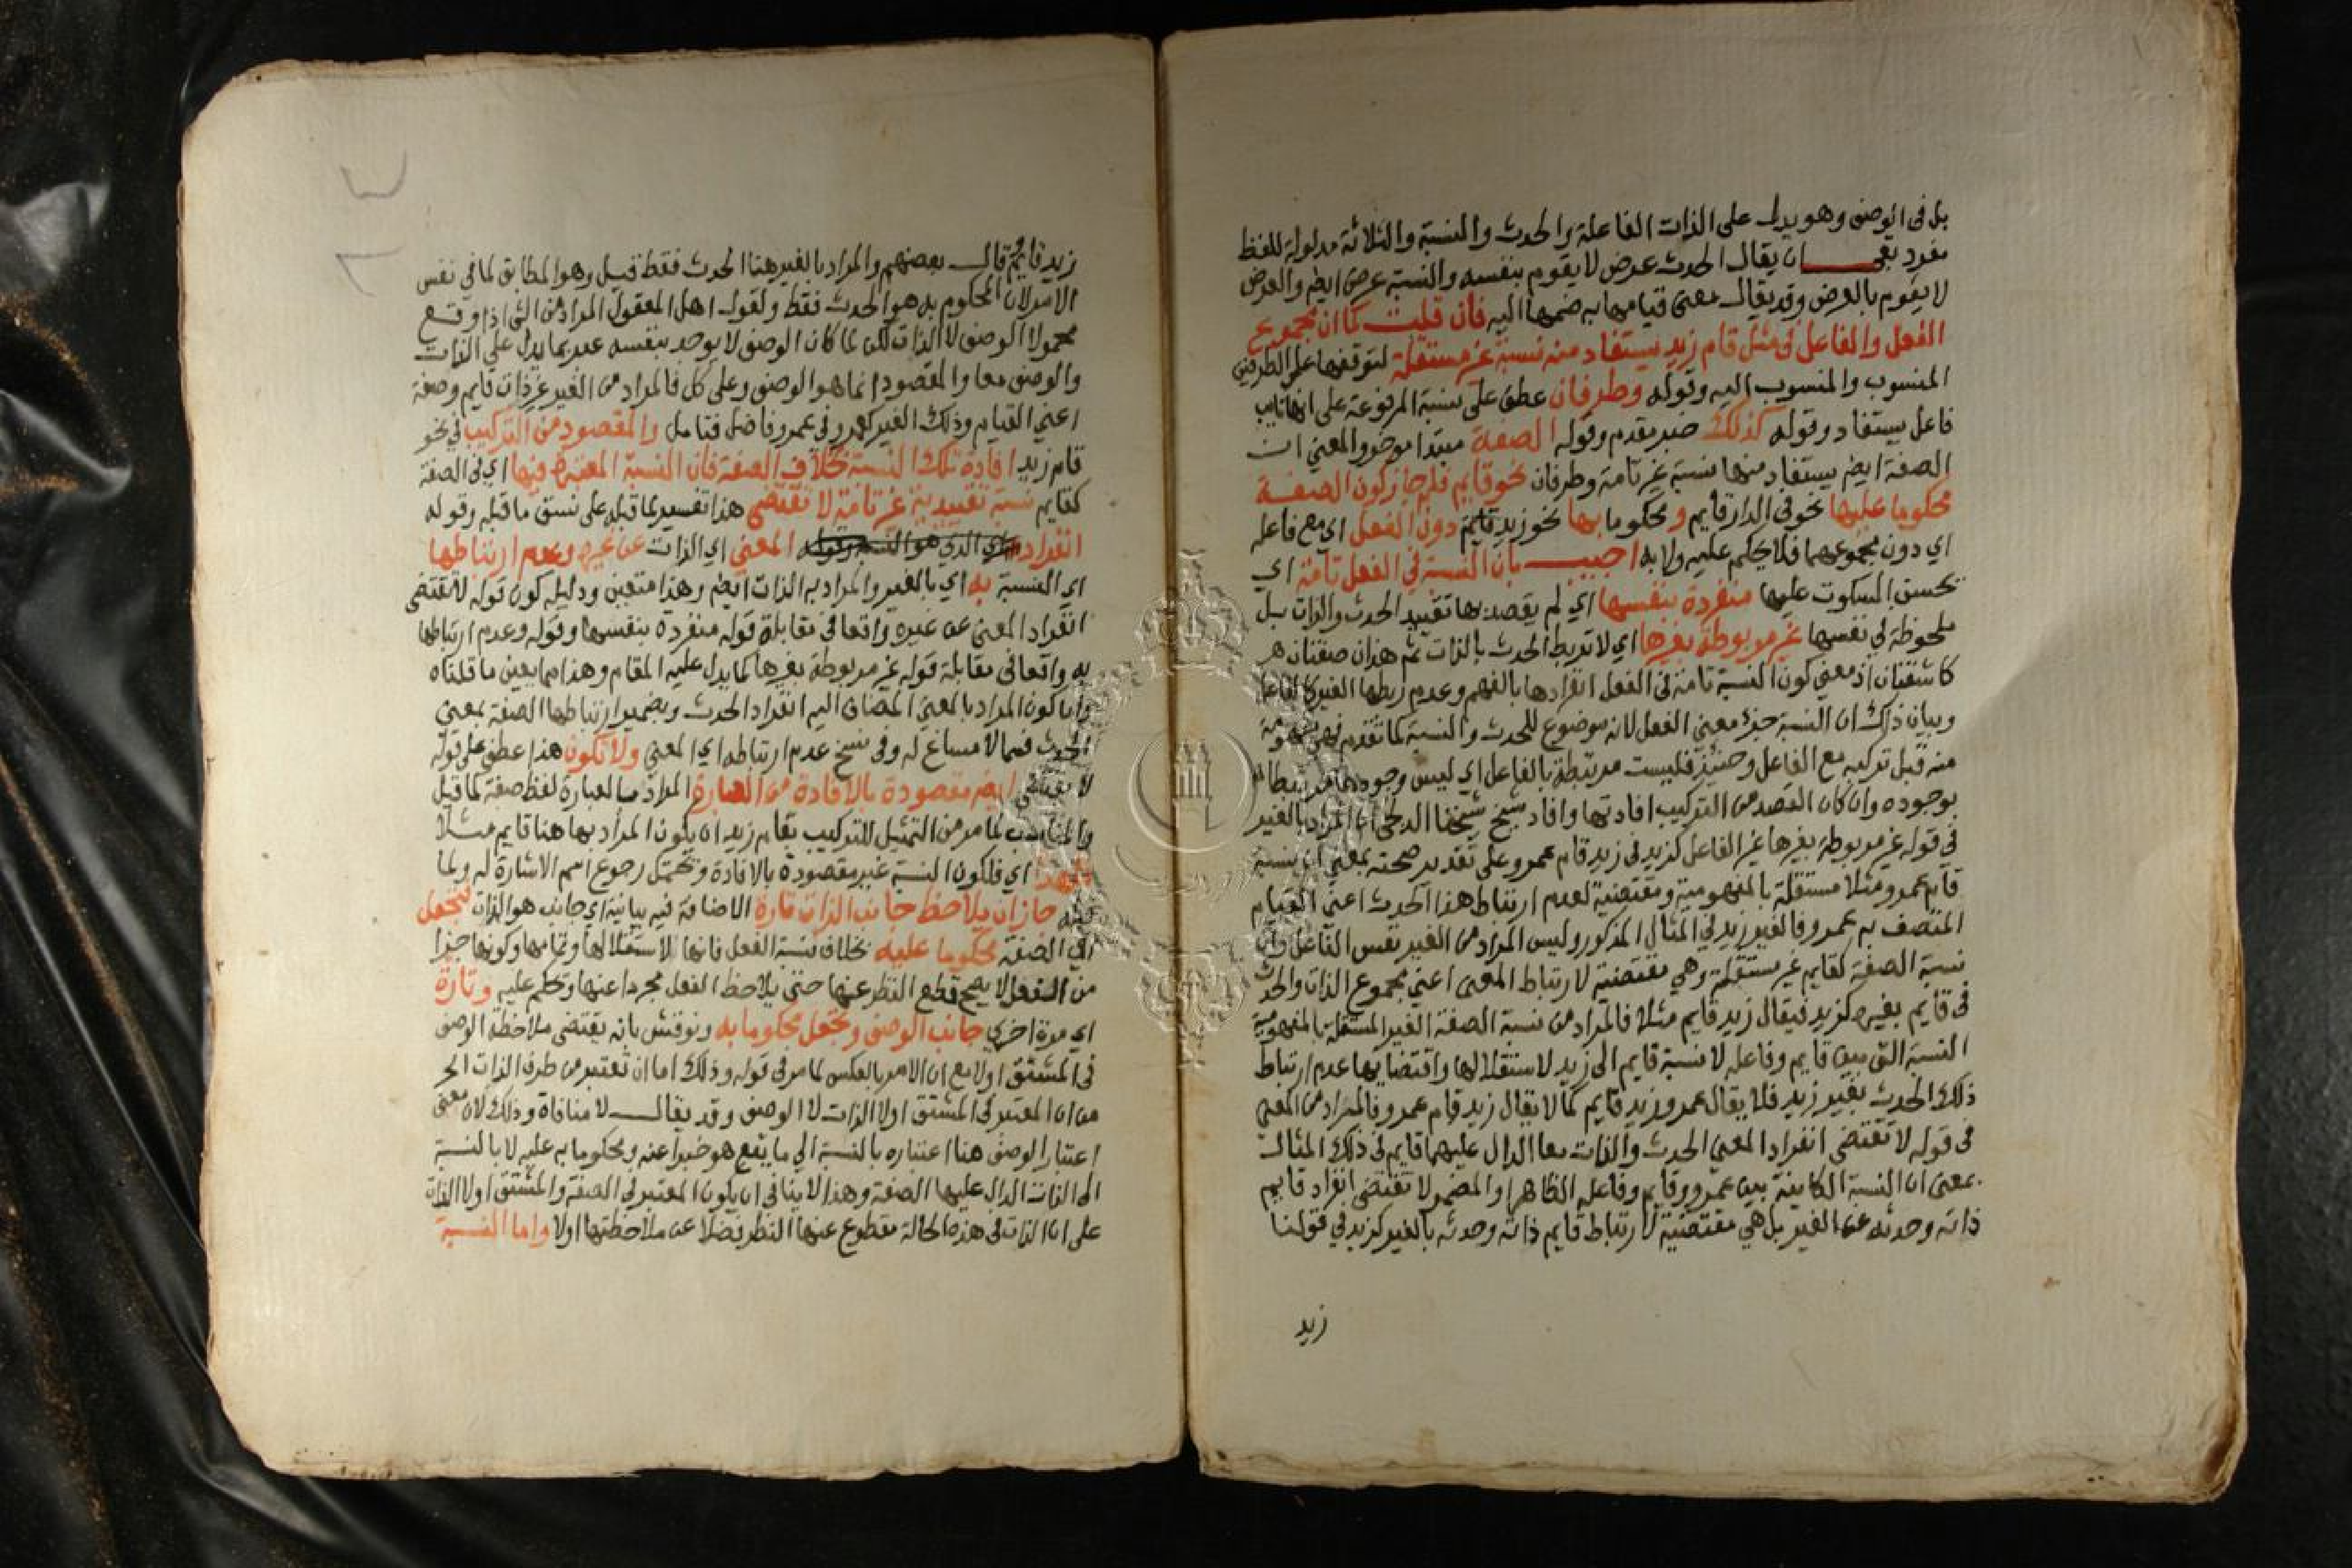 بل في الوصف وهو يدل على الذات الفاعلة والحدث والنسبة والثلاثة مدلولة للفظ
مفرد بقي ان يقال الحدث عرض لا يقوم بنفسه والنسبة عرض ايض والعرض
لا يقوم بالعرض وقد يقال معنى قيامها به ضمها اليه فان قلت كما ان مجموع
الفعل والفاعل في مثل قام زيد يستفاد منه نسبة غير مستقلة لتوقفها على الطرفين
المنسوب والمنسوب اليه وقوله وطرفان عطف على نسبة المرفوعة على انها نايب
فاعل يستفاد وقوله كذلك خبر مقدم وقوله الصفة مبتدا موخر والمعنى ان
الصفة ايض يستفاد منها نسبة غير تامة وطرفان نحو قايم فلم جاز كون الصفة
محكوما عليها نحو في الدار قايم و محكوما بها نحو زيد قايم دون الفعل اي مع فاعله
اي دون مجموعهما فلا يحكم عليه ولا به اجيب بان النسبة في الفعل تامة اي
يحسن السكوت عليها منفردة بنفسها اي لم يقصد بها تقييد الحدث والذات بل
ملحوظة في نفسها غير مربوطة بغيرها اي لا تربط الحدث بالذات ثم هذان صفتان
كاشفتان اذ معنى كون النسبة تامة في الفعل انفرادها بالفهم وعدم ربطها الغير كالفاعل
وبيان ذلك ان النسبة جزء معنى الفعل لانه موضوع للحدث والنسبة كما تقدم فهي مفهومة
منه قبل تركيبه مع الفاعل وحينئذ فليست مرتبطة بالفاعل اي ليس وجودها مرتبطا
بوجوده وان كان القصد من التركيب افادتها وافاد شيخ شيخنا الدلجي ان المراد بالغير
في قوله غير مربوطة بغيرها غير الفاعل كزيد في زيد قام عمرو وعلى تقدير صحته بمعنى ان نسبة
قام عمرو مثلا مستقلة بالمفهومية ومقتضية لعدم ارتباط هذا الحدث اعني القيام
المتصف به عمرو فالغير زيد في المثال المذكور وليس المراد من الغير نفس الفاعل وان
نسبة الصفة كقايم غير مستقلة وهي مقتضية لارتباط المعنى اعني مجموع الذات والحدث
في قايم بغيره كزيد فيقال زيد قايم مثلا فالمراد من نسبة الصفة الغير المستقلة بالمفهومية
النسبة التي بين قايم وفاعله لا نسبة قايم الى زيد لاستقلالها واقتضايها عدم ارتباط
ذلك الحدث بغير زيد فلا يقال عمرو زيد قايم كما لا يقال زيد قام عمرو فالمراد من المعنى
في قوله لا تقتضي انفراد المعنى الحدث والذات معا الدال عليهما قايم في ذلك المثال
بمعنى ان النسبة الكاينة بين عمرو وقايم وفاعله الظاهر او المضمر لا تقتضي انفراد قايم
ذاته وحدثه عن الغير بل هي مقتضية لارتباط قايم ذاته وحدثه بالغير كزيد في قولنا
زيد
زيد قايم قال بعضهم والمراد بالغير هنا الحدث فقط قيل وهو المطابق لما في نفس
الامر لان المحكوم به هو الحدث فقط ولقول اهل المعقول المراد من الشي اذا وقع
محمولا الوصف لا الذات لكن لما كان الوصف لا يوجد بنفسه عبر بما يدل على الذات
والوصف معا والمقصود انما هو الوصف وعلى كل فالمراد من الغير غير ذات قايم وصفة
اعني القيام وذلك الغير كعمرو في عمرو فاضل فتامل والمقصود من التركيب في نحو
قام زيد افادة تلك النسبة بخلاف الصفة فان النسبة المعتبرة فيها اي في الصفة
كقايم نسبة تقييدية غير تامة لا تقتضي هذا تفسير لما قبله على نسق ما قبله وقوله
انفراد المعنى اي الذات عن غيره وعدم ارتباطها
اي النسبة به اي بالغير والمراد به الذات ايض وهذا متعين ودليله كون قوله لا تقتضي
انفراد المعنى عن غيره واقعا في مقابلة قوله منفردة بنفسها وقوله وعدم ارتباطها
به واقعا في مقابلة قوله غير مربوطة بغيرها كما يدل عليه المقام وهذا مما يعين ما قلناه
واما كون المراد بالمعنى المضاف اليه انفراد الحدث وبضمير ارتباطها الصفة بمعنى
الحدث فمما لا مساغ له وفي نسخ عدم ارتباطه اي المعنى ولا تكون هذا عطف على قوله
لا تقتضي ايض مقصودة بالافادة من العبارة المراد من العبارة لفظ صفة كما قيل
والمناسب لما مر من التمثيل للتركيب بقام زيد ان يكون المراد بها هنا قايم مثلا
فلهذا اي فلكون النسبة غير مقصودة بالافادة ويحتمل رجوع اسم الاشارة له ولما
قبله جاز ان يلاحظ جانب الذات تارة الاضافة فيه بيانية اي جانب هو الذات فتجعل
اي الصفة محكوما عليه بخلاف نسبة الفعل فانها لاستقلالها وتمامها وكونها جزا
من الفعل لا يصح قطع النظر عنها حتى يلاحظ الفعل مجردا عنها ويحكم عليه وتارة
اي مرة اخرى جانب الوصف وتجعل محكوما به ونوقش بانه يقتضي ملاحظة الوصف
في المشتق اولا مع ان الامر بالعكس لما مر في قوله وذلك اما ان تعتبر من طرف الذات الخ
من ان المعتبر في المشتق اولا الذات لا الوصف وقد يقال لا منافاة وذلك لان معنى
اعتبار الوصف هنا اعتباره بالنسبة الى ما يقع هو خبرا عنه ومحكوما به عليه لا بالنسبة
الى الذات الدال عليها الصفة وهذا لا ينافي ان يكون المعتبر في الصفة والمشتق اولا الذات
على ان الذات في هذه الحالة مقطوع عنها النظر فضلا عن ملاحظتها اولا واما النسبة